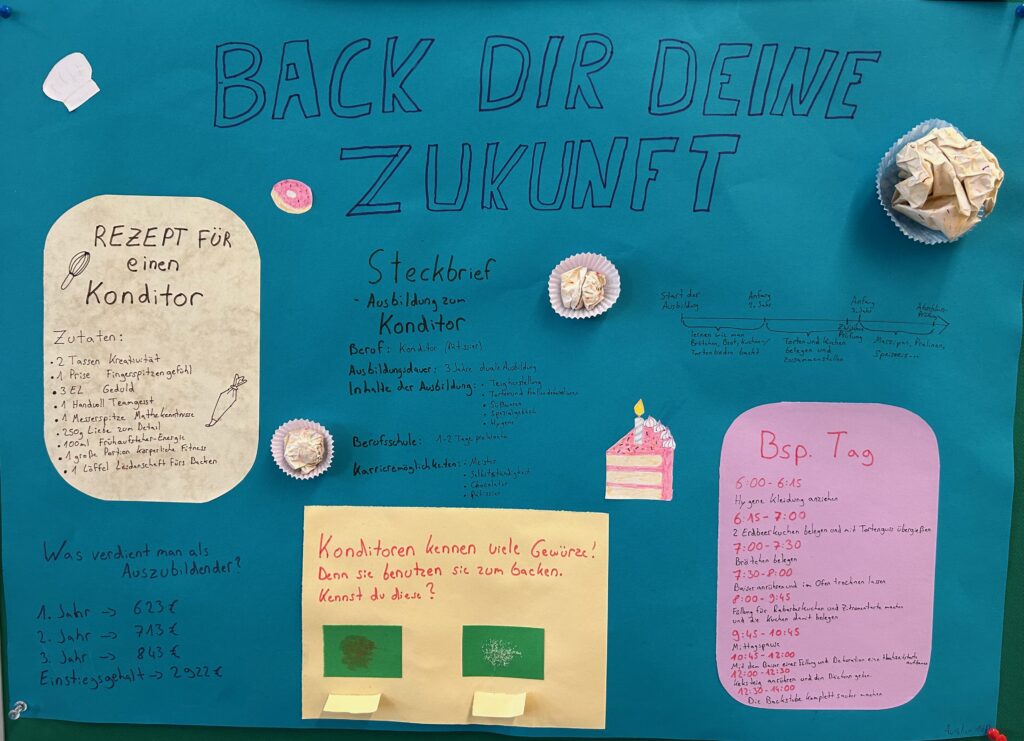 BACK DIR DEINE
ZUKUNFT
REZEPT FÜR
einen
Konditor
Zutaten:
• 2 Tassen Kreativität
• 1 Prise Fingerspitzengefühl
• 3 EL Geduld
• 1 Handvoll Teamgeist
• 1 Messerspitze Mathekenntnisse
• 250g Liebe zum Detail
• 100ml Frühaufsteher-Energie
• 1 große Portion Körperliche Fitness
• 1 Löffel Leidenschaft fürs Backen
Steckbrief
- Ausbildung zum
Konditor
Beruf: Konditor (Pâtissier)
Ausbildungsdauer: 3 Jahre duale Ausbildung
Inhalte der Ausbildung: • Teigherstellung
• Torten und
• Süßwaren
• Spezialgebäck
• Hygene
Berufsschule: 1-2 Tage pro Woche
Karrieremöglichkeiten: • Meister
• Selbstständigkeit
• Chocolatier
• Pâtissier
Start der
Ausbildung
Anfang
2. Jahr
Anfang
3. Jahr
Abschluss-
Prüfung
Zwischen
Prüfung
lernen wie man
Brötchen, Brot, Kuchen-/
Tortenboden backt
Torten und Kuchen
belegen und
zusammenstellen
Marzipan, Pralinen,
Speiseeis...
Was verdient man als
Auszubildender?
1. Jahr → 623€
2. Jahr → 713€
3. Jahr → 843€
Einstiegsgehalt → 2922€
Konditoren kennen viele Gewürze!
Denn sie benutzen sie zum backen.
Kennst du diese?
Bsp. Tag
6:00 - 6:15
Hygene Kleidung anziehen
6:15 - 7:00
2 Erdbeerkuchen belegen und mit Tortenguss übergießen
7:00 - 7:30
Brötchen belegen
7:30 - 8:00
Baiser anrühren und im Ofen trocknen lassen
8:00 - 9:45
Füllung für Rabarbakuchen und Zitronentarte machen
und die Kuchen damit belegen
9:45 - 10:45
Mittagspause
10:45 - 12:00
Mit dem Baiser einer Füllung und Dekoration eine Hochzeitstorte
aufbauen
12:00 - 12:30
Keksteig anrühren und den Bäckern geben
12:30 - 14:00
Die Backstube komplett sauber machen